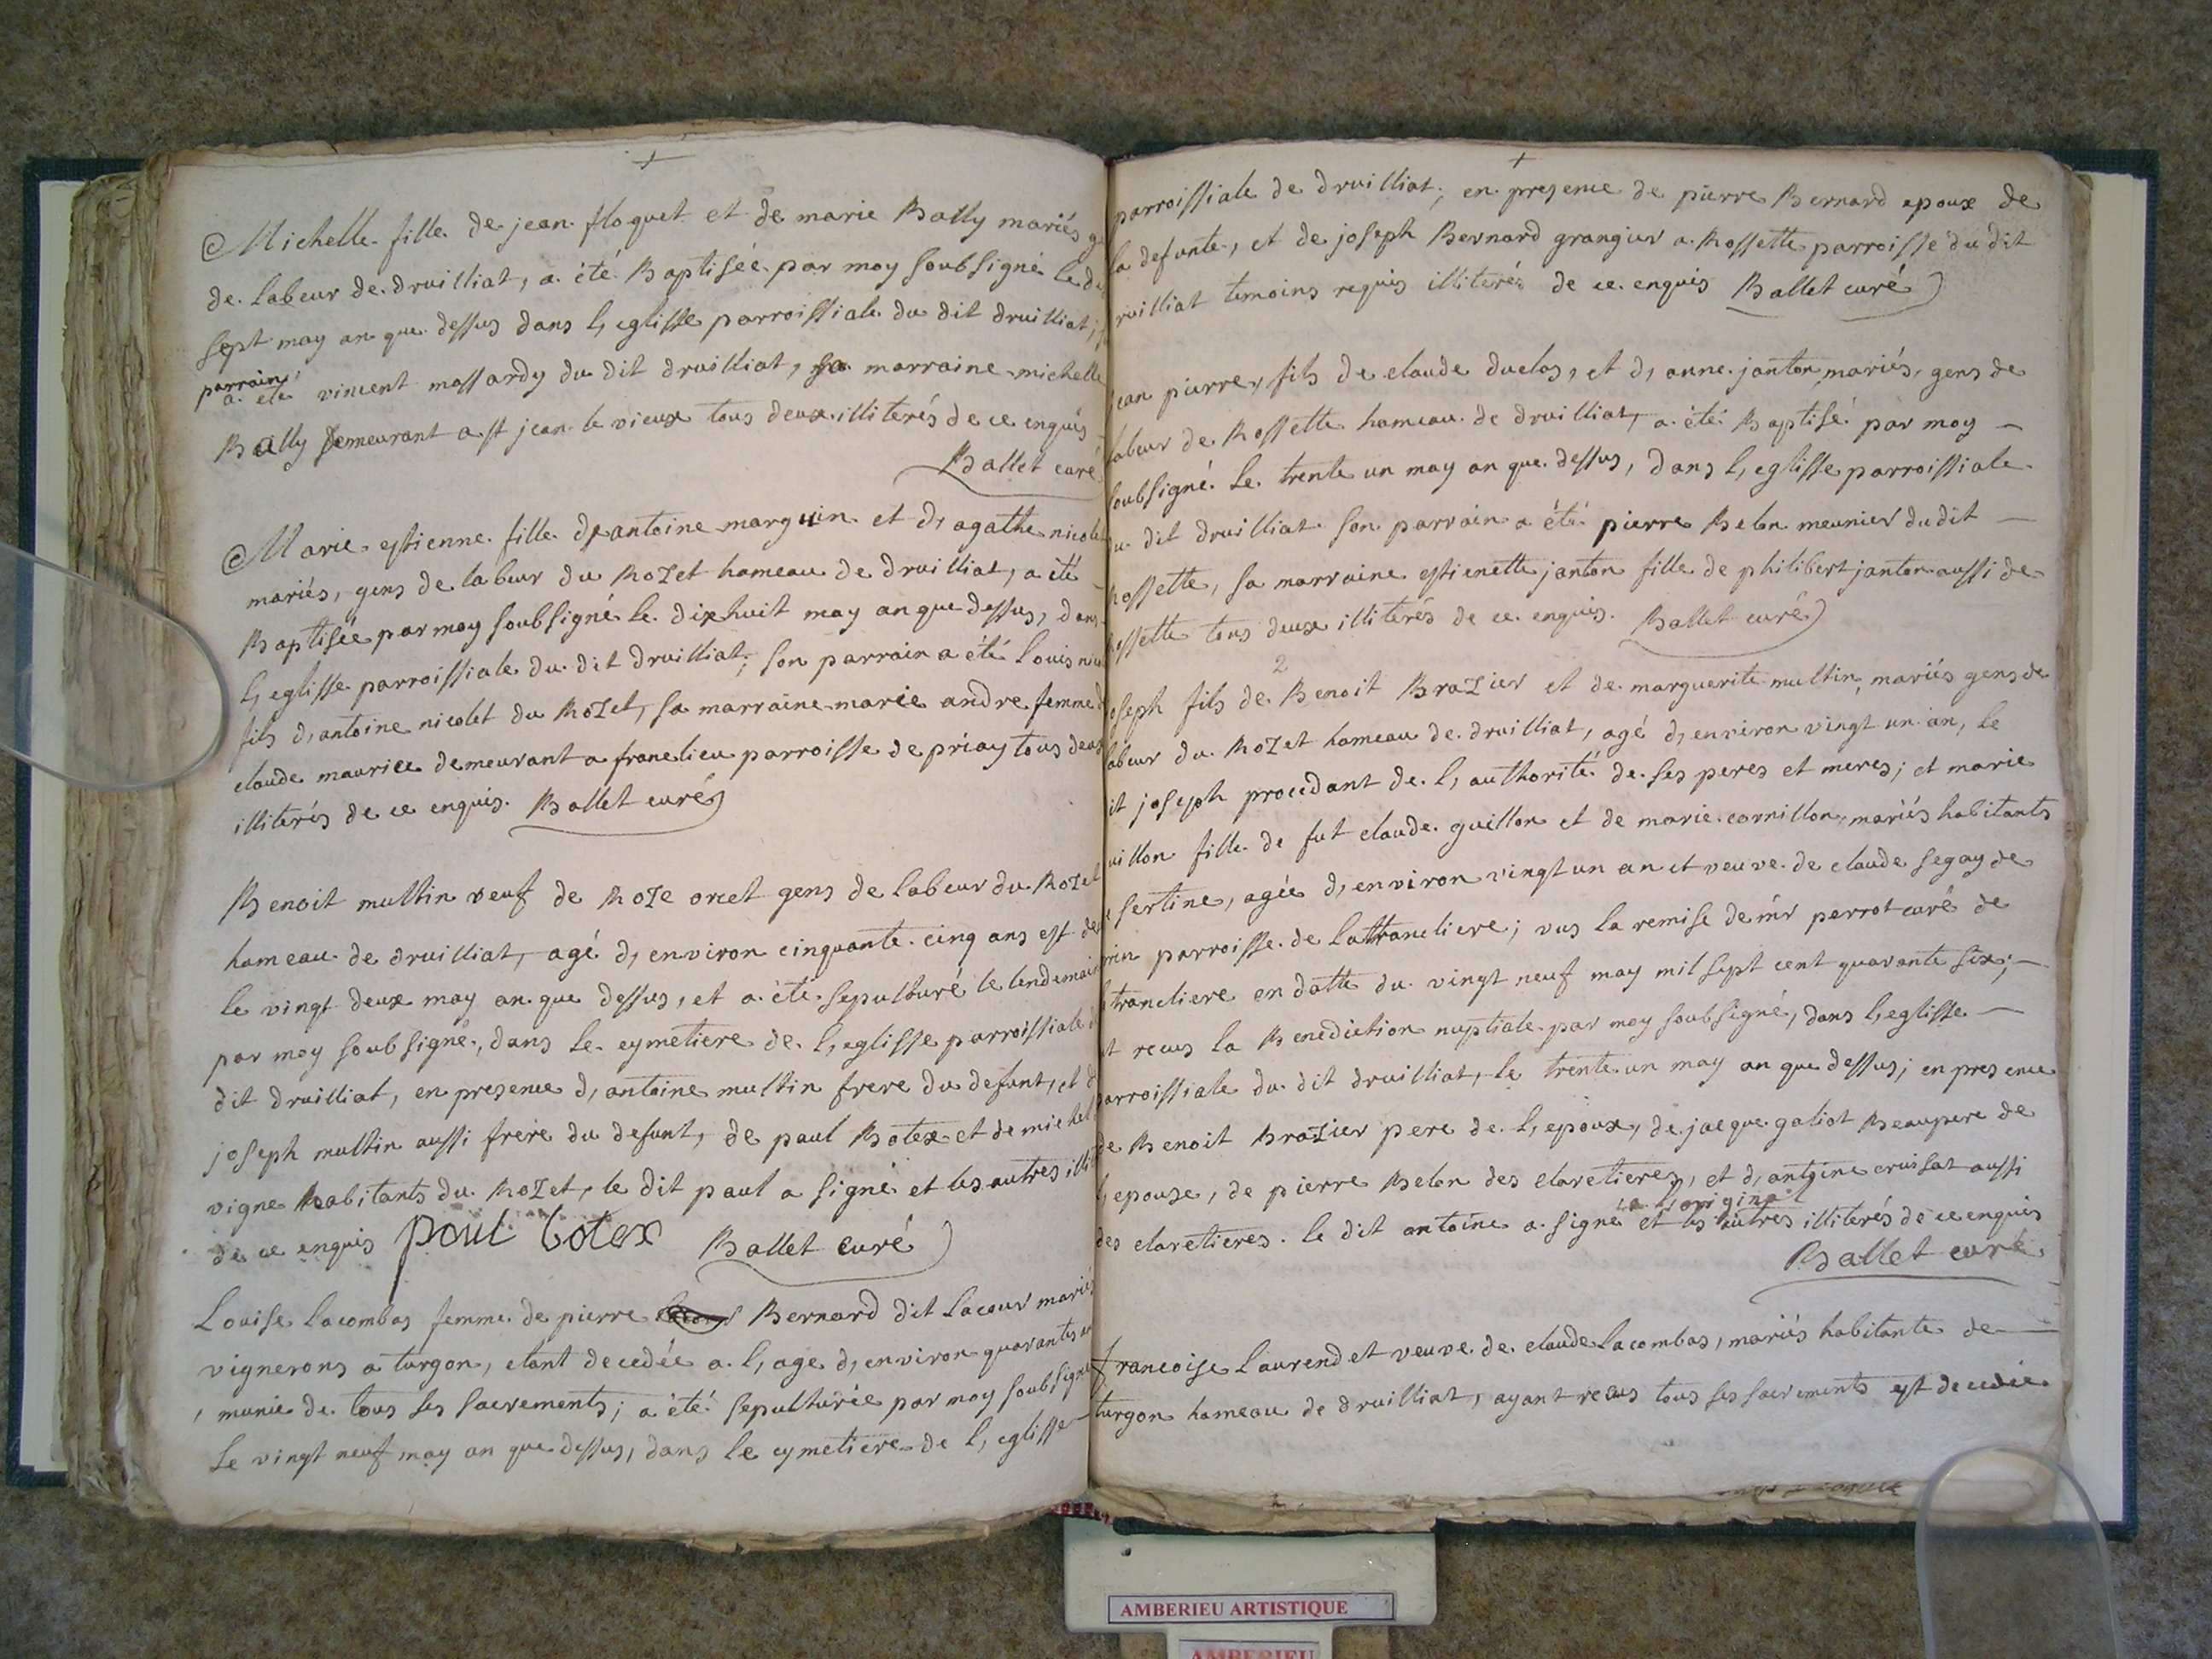 Michelle fille de jean floquet et de marie Bally mariés
de labeur de druilliat, a été Baptisée par moy soubsigné le
sept may an que dessus dans l, eglisse parroissiale du dit druilliat;
parrain
a été vincent massardy du dit druilliat, sa marraine michelle
Bally demeurant a st jean le vieux tous deux illiterés de ce enquis
Ballet curé
Marie estienne fille d, antoine marguin et d, agathe nicolet
mariés, gens de labeur du Rozet hameau de druilliat, a été
Baptisée par moy soubsigné le dixhuit may an que dessus, dans
l, eglisse parroissiale du dit druilliat; son parrain a été Louis
fils d, antoine nicolet du Rozet, sa marraine marie andre femme
claude maurice demeurant a franclieu parroisse de priay tous deux
illiterés de ce enquis. Ballet curé
Benoit multin veuf de Roze orcet gens de labeur du Rozet
hameau de druilliat, agé d, environ cinquante cinq ans est
le vingt deux may an que dessus, et a été sepulturé le lendemain
par moy soubsigné, dans le cymetiere de l, eglisse parroissiale
dit druilliat, en presence d, antoine multin frere du defunt, et
joseph multin aussi frere du defunt, de paul Botex et de michel
vigne habitants du Rozet, le dit paul a signé et les autres
de ce enquis paul botex Ballet curé
Louise lacombas femme de pierre Bernard dit lacour mariés
vignerons a turgon, etant decedée a l, age d, environ quarante
munie de tous ses sacrements; a été sepulturée par moy soubsigné
le vingt neuf may an que dessus, dans le cymetiere de l, eglisse
parroissiale de druilliat; en presence de pierre Bernard epoux de
la defunte, et de joseph Bernard grangier a Rossette parroisse du dit
ruilliat temoins requis illiterés de ce enquis Ballet curé
jean pierre, fils de claude duclos, et d, anne janton mariés, gens de
labeur de Rossette hameau de druilliat, a été Baptisé par moy
soubsigné le trente un may an que dessus, dans l, eglisse parroissiale
du dit druilliat son parrain a été pierre Belon meunier du dit
Rossette, sa marraine estienette janton fille de philibert janton aussi de
Rossette tous deux illiterés de ce enquis. Ballet curé
2
joseph fils de Benoit Brazier et de marguerite multin, mariés gens de
labeur du Rozet hameau de druilliat, agé d, environ vingt un an, le
dit joseph procedant de l, authorité de ses peres et meres; et marie
uillon fille de fut claude guillon et de marie cornillon, mariés habitants
sertine, agée d, environ vingt un an et veuve de claude segay de
rin parroisse de lattrancliere; vus la remise de mr perrot curé de
trancliere en datte du vingt neuf may mil sept cent quarante six;
t recus la Benediction nuptiale par moy soubsigné, dans l, eglisse
parroissiale du dit druilliat, le trente un may an que dessus; en presence
de Benoit Brazier pere de l, epoux, de jacque galiot Beaupere de
l, epouse, de pierre Belon des claretieres, et d, antoine cruisat aussi
a l, original
des claretieres. le dit antoine a signé et les autres illiterés de ce enquis
Ballet curé
francoise Laurend et veuve de claude lacombas, mariés habitante de
turgon hameau de druilliat, ayant recus tous ses sacrements est decedée
AMBERIEU ARTISTIQUE
AMBERIEU